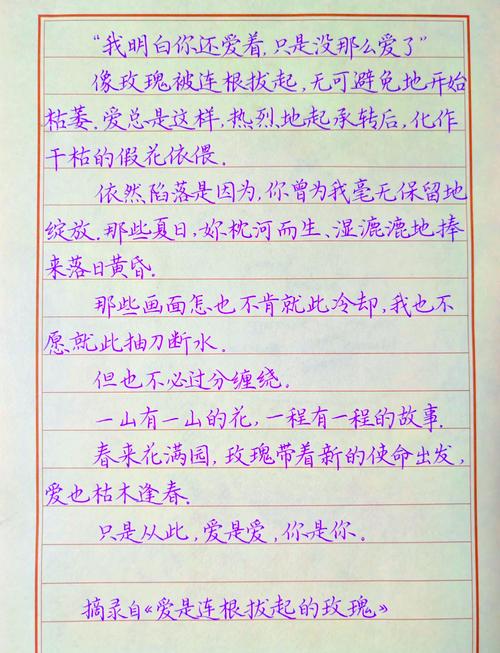 “我明白你还爱着,只是没那么爱了”
像玫瑰被连根拔起,无可避免地开始
枯萎.爱总是这样,热烈地起承转后,化作
干枯的假花依偎.
依然陷落是因为,你曾为我毫无保留地
绽放.那些夏日,妳枕河而生、湿漉漉地捧
来落日黄昏.
那些画面怎也不肯就此冷却,我也不
愿就此抽刀断水.
但也不必过分缠绕.
一山有一山的花,一程有一程的故事.
春来花满园,玫瑰带着新的使命出发,
爱也枯木逢春.
只是从此,爱是爱,你是你。
摘录自《爱是连根拔起的玫瑰》